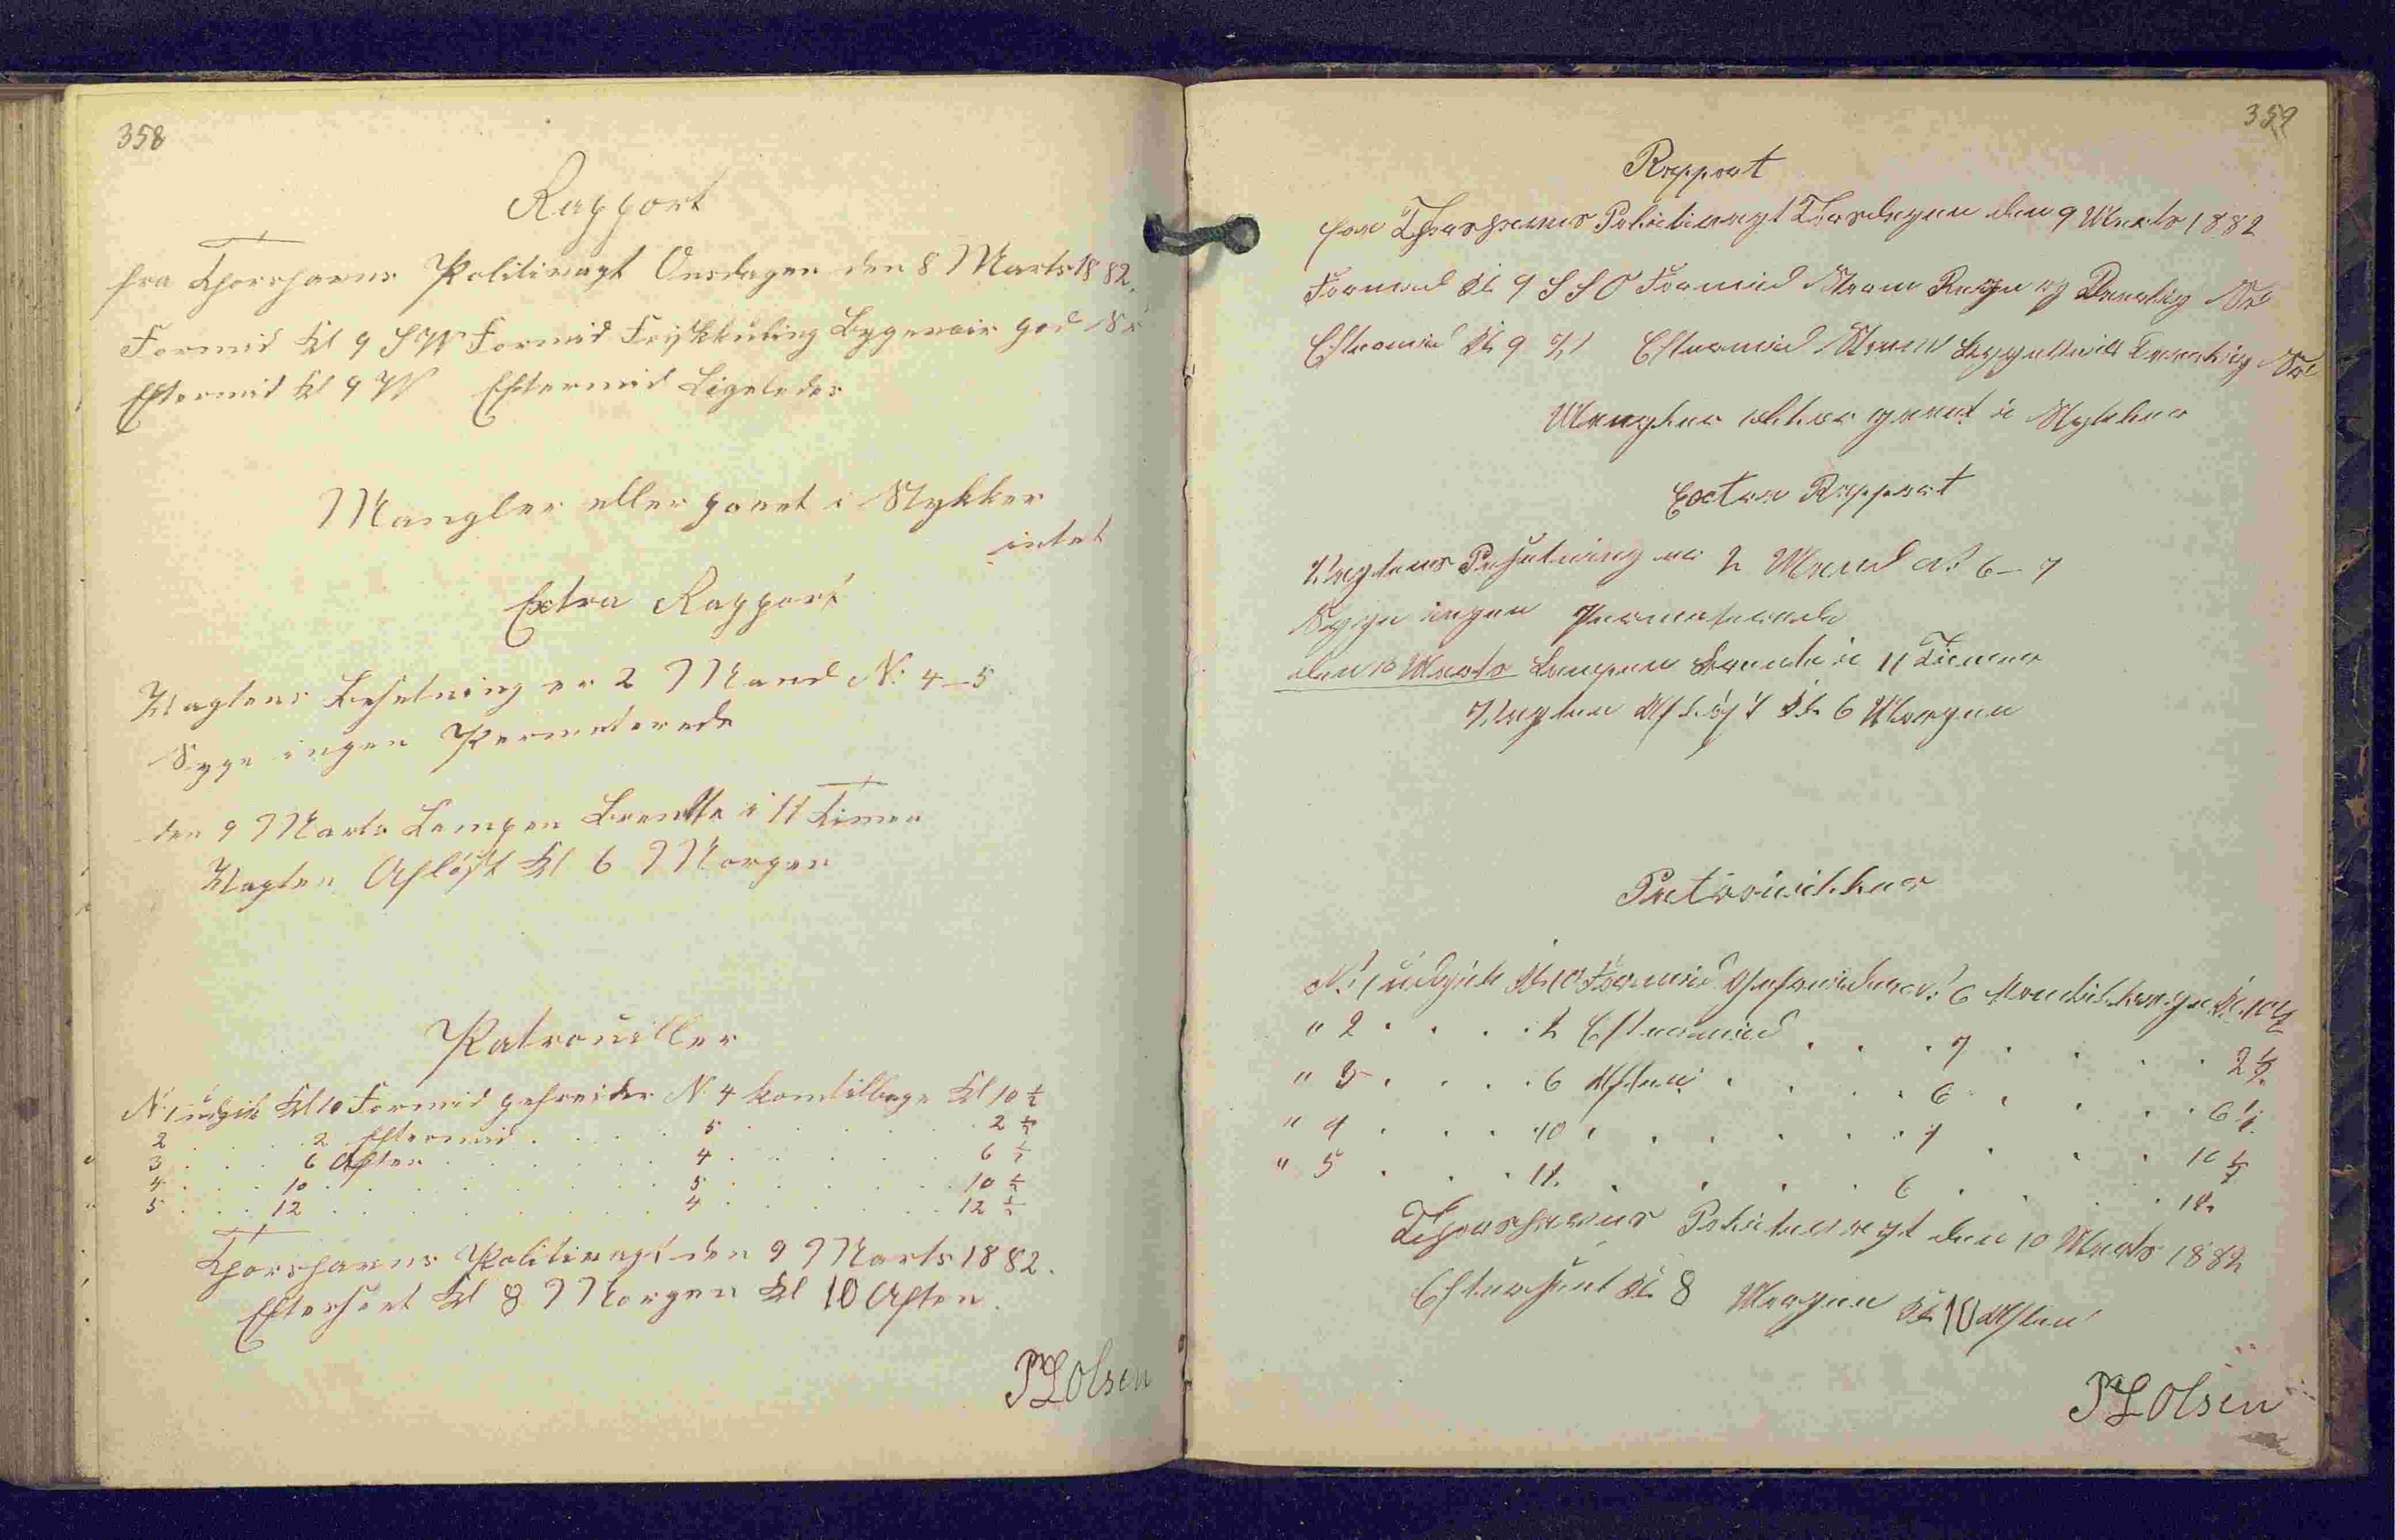 358
Rapport
fra Thorshavns Politivagt Onsdagen den 8 Marts 1882.
Formid Kl 9 SW Formid Friskkuling Bygeveir god
Eftermid Kl 9 W Eftermid Ligeledes
Mangler eller gaaet i Stykker
intet
Extra Rapport
Vagtens Besetning er 2 Mand N: 4-5
Syge ingen Permeterede
den 9 Marts Lampen Brendte i 11 Timer
Vagten Afløst Kl 6 Morgen
Patrouiller
N: 1 udgik Kl 10 Formid gefreider N 4 kom tilbage Kl 10 ½
2 . . . . 2 Eftermid . . . . 5 . . . . . . 2 ½
3 . . . . 6 Aften . . . . . . 4 . . . . . . 6 ½
4 . . . 10 . . . . . . . . . 5 . . . . . . 10 ½
5 . . . 12 . . . . . . . . . 4 . . . . . . 12 ½
Thorshavns Politivagt den 9 Marts 1882.
Efterseet Kl 8 Morgen Kl 10 Aften.
PL Olsen
359
Rapport
fra Thorshavns Politivagt Torsdagen den 9 Marts 1882
Formid Kl 9 SSO Formid Storm Regn og
Eftermid Kl 9 V Eftermid Storm
Mangler eller gaaet i Stykker
Extra Rapport
Vagtens Besetning er 2 Mand N: 6-7
Syge ingen Permeterede
den 10 Marts Lampen Brendte i 11 Timer
Vagten Afløst Kl 6 Morgen
Patrouiller
N: 1 udgik Kl 10 Formid Gefreider N: 6 kom tilbage Kl. 10 ½
" 2 . . . . 2 Eftermid . . . 7 . . . . 2 ½
" 3 . . . . 6 Aften . . . . 6 . . . . 6 ½
" 4 . . . 10 . . . . . . . 7 . . . . 10 ½
" 5 . . . 12. . . . . . . 6 . . . .
Thorshavns Politivagt den 10 Marts 1882
Efterseet Kl 8 Morgen Kl 10 Aften
PL Olsen